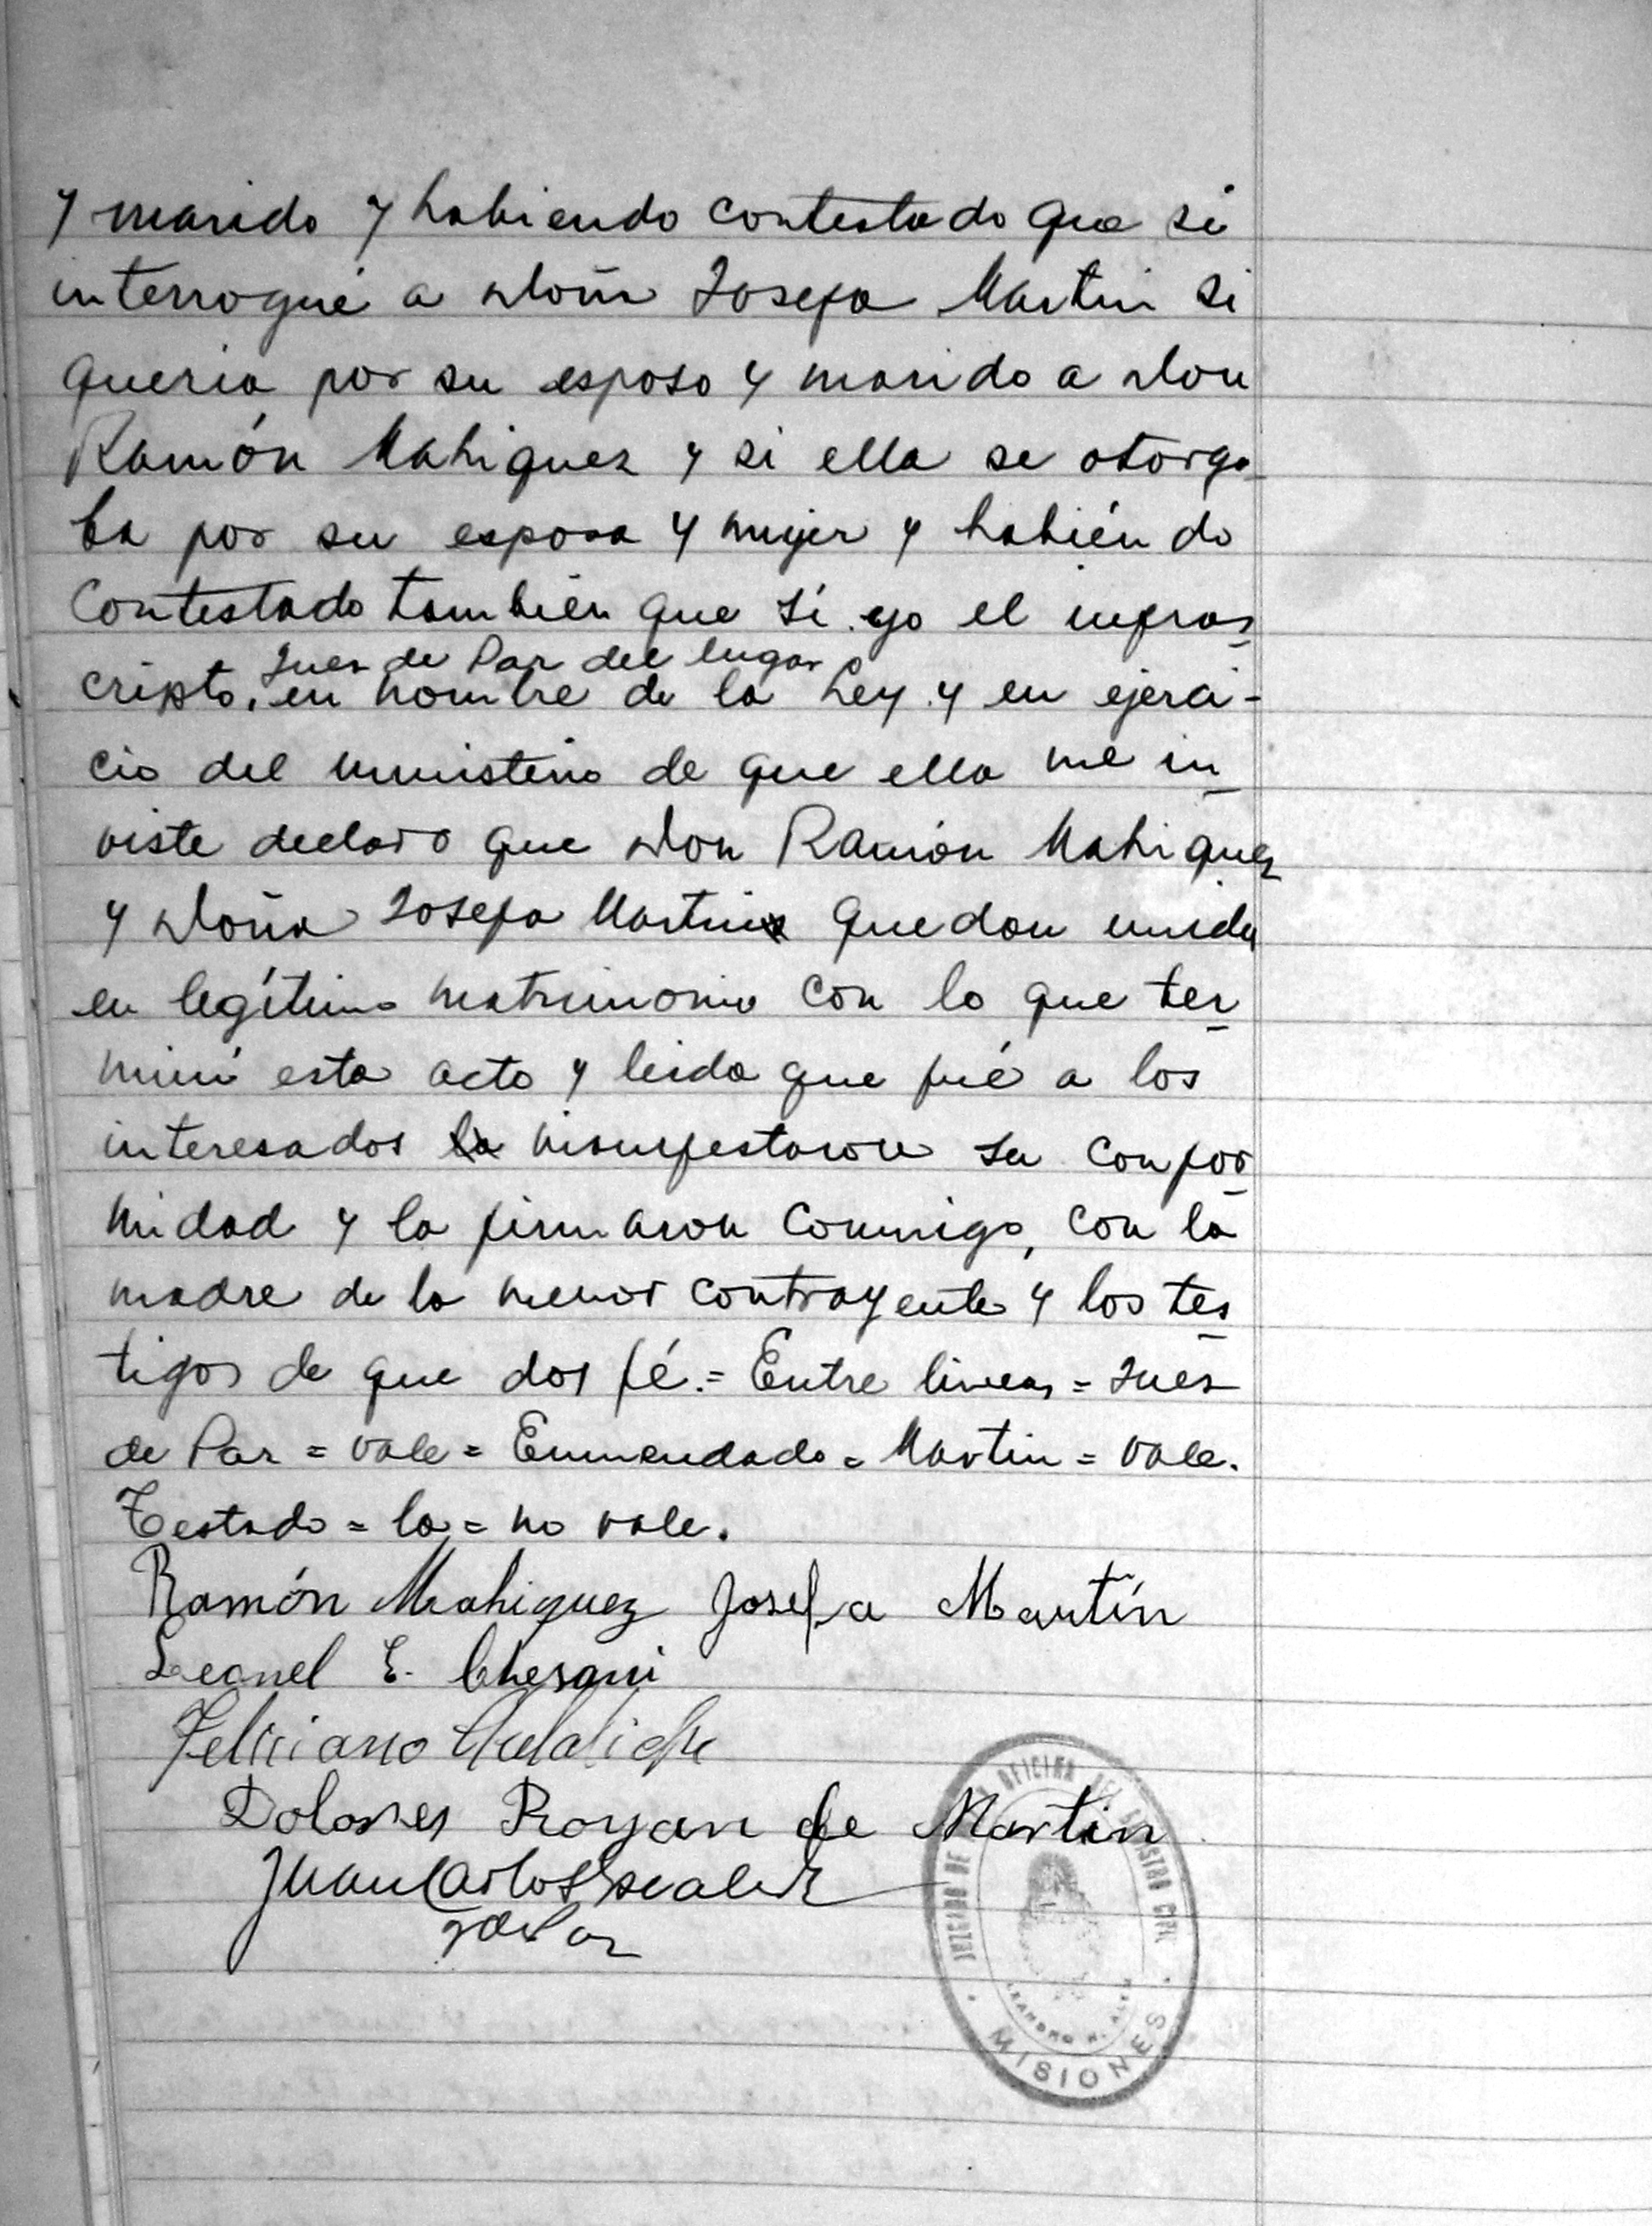 y marido y habiendo contestado que si
interrogué a Doña Josefa Martin si
queria por su esposo y marido a Don
Ramón Mahiquez y si ella se otorga
ba por su esposa y mujer y habiéndo
contestado también que sí yo el infras
Juez de Paz del lugar
cripto, en nombre de la Ley y en ejerci-
cio del ministerio de que ella me in
viste declaro que Don Ramón Mahiquez
y Doña Josefa Martin quedan unidos
en legítimo matrimonio con lo que ter
minó esta acto y leida que fué a los
interesados la manifestaron su confor
midad y la firmaron conmigo, con la
madre de la menor contrayente y los tes
tigos de que doy fé.= Entre lineas = Juez
de Paz = vale = Enmendado = Martin = vale.
Testado = la = no vale.
Ramón Mahiquez Josefa Martín
Leonel E. Chesani
Feliciano
Dolores Royan de Martin
Juan Carlos
J de Paz
JUZGADO DE OFICINA DEL REGISTRO CIVIL
LEANDRO N. ALEM
MISIONES